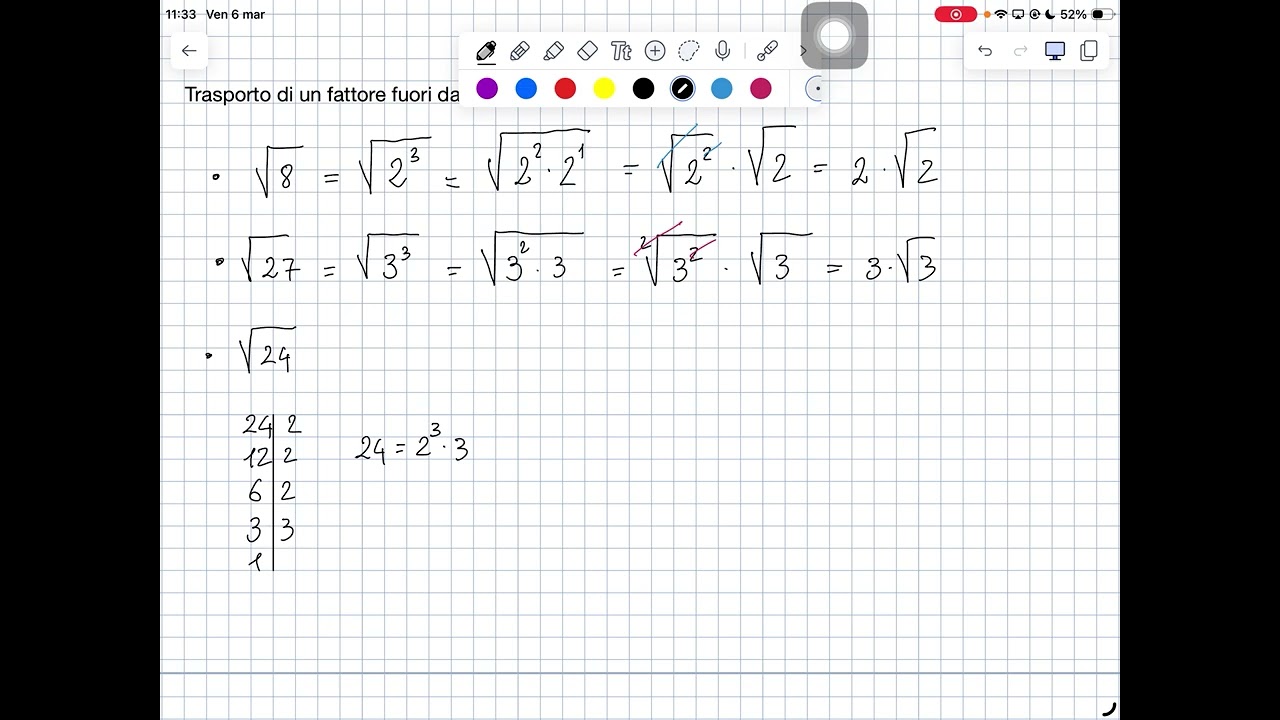 11:33 Ven 6 mar 52%
Tt
Trasporto di un fattore fuori da
• √8 = √2³ = √2² · 2¹ = √2² · √2 = 2 · √2
• √27 = √3³ = √3² · 3 = ²√3² · √3 = 3 · √3
• √24
24 | 2
12 | 2
6 | 2
3 | 3
1 |
24 = 2³ · 3